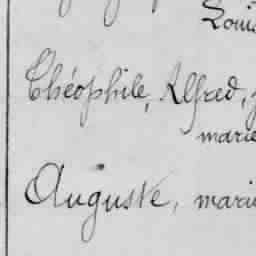 Louis
Théophile, Alfred,
marie
Auguste, marie